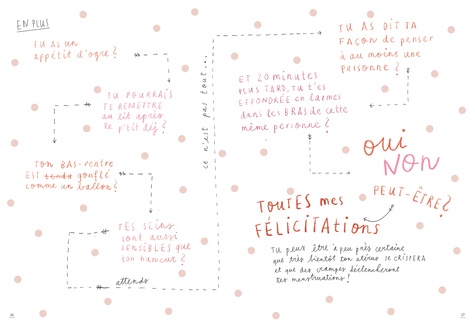 EN PLUS
TU AS UN
appétit d'ogre ?
TU POURRAIS
TE REMETTRE
au lit après
le p'tit déj ?
TON BAS-ventre
EST tendu gonflé
comme un ballon ?
TES SEINS
sont aussi
SENSIBLES que
ton humeur ?
attends
ce n'est pas tout...
TU AS DIT TA
FAÇON de penser
à au moins une
personne ?
ET 20 minutes
PLUS TARD, TU t'es
EFFONDRÉE en larmes
dans les BRAS de cette
même personne ?
OUI
NON
PEUT-ÊTRE ?
TOUTES mes
FÉLICITATIONS
TU peux être à peu près certaine
que très bientôt ton utérus se CRISPERA
et que des crampes déclencheront
tes menstruations !